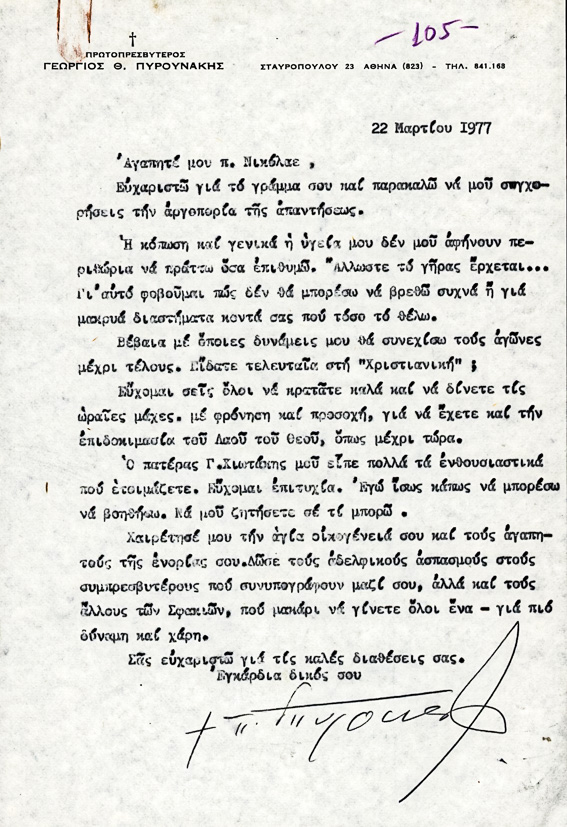 -105-
†
ΠΡΩΤΟΠΡΕΣΒΥΤΕΡΟΣ
ΓΕΩΡΓΙΟΣ Θ. ΠΥΡΟΥΝΑΚΗΣ
ΣΤΑΥΡΟΠΟΥΛΟΥ 23 ΑΘΗΝΑ (823) - ΤΗΛ. 841.168
22 Μαρτίου 1977
Ἀγαπητέ μου π. Νικόλαε ,
Εὐχαριστῶ γιά τό γράμμα σου καί παρακαλῶ νά μοῦ συγχο-
ρήσεις τήν ἀργοπορία τῆς ἀπαντήσεως.
Ἡ κόπωση καί γενικά ἡ ὑγεία μου δέν μοῦ ἀφήνουν πε-
ριθώρια νά πράττω ὅσα ἐπιθυμῶ. Ἄλλωστε τό γῆρας ἔρχεται...
Γι'αὐτό φοβοῦμαι πώς δέν θά μπορέσω νά βρεθῶ συχνά ἤ γιά
μακρυά διαστήματα κοντά σας πού τόσο τό θέλω.
Βέβαια μέ ὅποιες δυνάμεις μου θά συνεχίσω τούς ἀγῶνες
μέχρι τέλους. Εἴδατε τελευταῖα στή "Χριστιανική" ;
Εὔχομαι σεῖς ὅλοι νά κρατᾶτε καλά καί νά δίνετε τίς
ὡραῖες μάχες. μέ φρόνηση καί προσοχή, γιά νά ἔχετε καί τήν
ἐπιδοκιμασία τοῦ Λαοῦ τοῦ Θεοῦ, ὅπως μέχρι τώρα.
Ὁ πατέρας Γ.Χιωτάκης μοῦ εἶπε πολλά τά ἐνθουσιαστικά
πού ἑτοιμάζετε. Εὔχομαι ἐπιτυχία. Ἐγώ ἴσως κάπως νά μπορέσω
νά βοηθήσω. Νά μοῦ ζητήσετε σέ τί μπορῶ .
Χαιρέτησέ μου τήν ἁγία οἰκογένειά σου καί τούς ἀγαπη-
τούς τῆς ἐνορίας σου.Δῶσε τούς ἀδελφικούς ἀσπασμούς στούς
συμπρεσβυτέρους πού συνυπογράφουν μαζί σου, ἀλλά καί τούς
ἄλλους τῶν Σφακιῶν, πού μακάρι νά γίνετε ὅλοι ἕνα - γιά πιό
δύναμη καί χάρη.
Σᾶς εὐχαριστῶ γιά τίς καλές διαθέσεις σας.
Ἐγκάρδια δικός σου